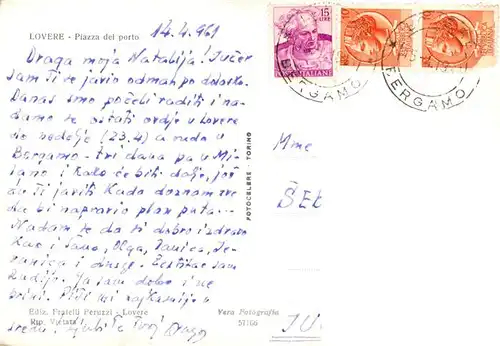 LOVERE - Piazza del porto
14.4.961
Draga moja Natalija! Jučer
sam ti se javio odman po dolasku.
Danas smo počeli raditi i na-
damo se ostati ovdje u Lovere
do nedelje (23.4) a onda u
Bergamo - tri dana pa u Mi-
lano i kako će biti dalje, još
ću ti javiti kada doznam sve
da bi napravio plan puta...
Nadam se da si dobro i zdravo
kao i Olga, Danica, Je-
ranica i druge.
Ja sam dobro i ne
brini. Piši mi najkasnije u
sredu! Ljubi te tvoj Drago
Ediz. Fratelli Peruzzi - Lovere
Rip. Vietata
Vera Fotografia
57166
FOTOCELERE - TORINO
15
LIRE
ITALIANE
BERGAMO
BERGAMO
Mme
ŠEB
JU